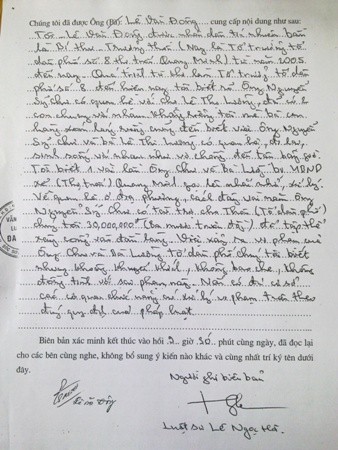 Chúng tôi đã được Ông (Bà): Lê Văn Đông.... cung cấp nội dung như sau:
Tôi - Lê Văn Đông được nhân dân tín nhiệm bầu
là Bí thư - Trưởng thôn (Nay là Tổ trưởng tổ
dân phố số 8 thị trấn Quang Minh) từ năm 2005
đến nay. Quá trình tôi làm Tổ trưởng tổ dân
phố số 8 đến hiện nay tôi biết rõ Ông Nguyễn
Sỹ Chư có quan hệ với Cô Lê Thị Lường, đã có 2
con chung với nhau. Không những tôi mà bà con
hàng xóm láng giềng cũng đều biết việc Ông Nguyễn
Sỹ Chư và bà Lê Thị Lường có quan hệ, đi lại,
sinh sống với nhau như vợ chồng đến tận bây giờ.
Tôi biết 1 vài lần Ông Chư và Bà Lường bị UBND
xã (Thị trấn) Quang Minh gọi lên nhắc nhở, xử lý.
Về quan hệ ở địa phương, cách đây vài năm Ông
Nguyễn Sỹ Chư có tài trợ cho Thôn (Tổ dân phố)
chúng tôi 30,000,000đ (Ba mươi triệu đ) để tập thể
xây cổng vào dân làng. Việc xảy ra vi phạm của
Ông Chư và Bà Lường Tổ dân phố chúng tôi biết
nhưng không khuyến khích, không bao che, không
đồng tình với sai phạm này. Nên có đủ cơ sở
các cơ quan chức năng cứ xử lý vi phạm trên theo
đúng quy định của pháp luật.
Biên bản xác minh kết thúc vào hồi 9.. giờ 50.. phút cùng ngày, đã đọc lại
cho các bên cùng nghe, không bổ sung ý kiến nào khác và cùng nhất trí ký tên dưới
đây.
Người ghi biên bản
Lê Văn Đông
Luật sư Lê Ngọc Hà